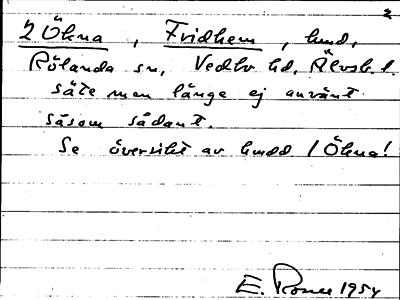 2
2 Öhna , Fridhem , hmd,
Rölanda sn, Vedbo hd, Älvsb. l.
säte men länge ej använt
såsom sådant.
Se översikt av hmdd 1 Öhna!
E. 1954